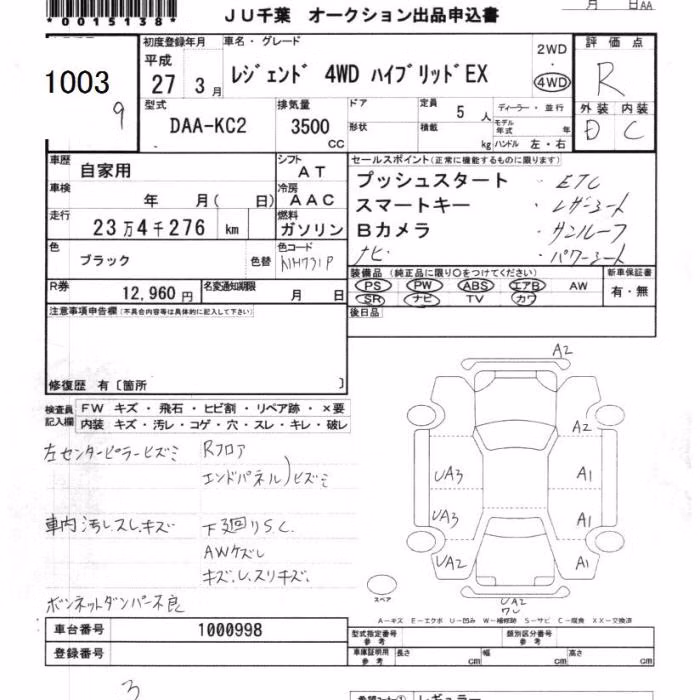 *0015138*
JU千葉 オークション出品申込書
月 日AA
1003
9
初度登録年月
平成
27 3月
車名・グレード
レジェンド 4WD ハイブリッドEX
2WD
・
4WD
評価点
R
外装 内装
D C
型式
DAA-KC2
排気量
3500
CC
ドア
形状
定員
5 人
積載
kg
ディーラー・並行
モデル年式 年
ハンドル 左・右
車歴
自家用
シフト
AT
車検
年 月( 日)
冷房
AAC
走行
23万4千276 km
燃料
ガソリン
色
ブラック
色替
色コード
NH731P
R券
12,960 円
名変通知期限
月 日
セールスポイント(正常に機能するものに限ります)
プッシュスタート ・ETC
スマートキー ・レザーシート
Bカメラ ・サンルーフ
ナビ ・パワーシート
装備品(純正品に限り○をつけてください)
PS PW ABS エアB AW
SR ナビ TV カワ
新車保証書
有・無
後日品
注意事項申告欄(不具合内容等は具体的に記入して下さい)
修復歴 有〔箇所 〕
検査員記入欄
FW キズ・飛石・ヒビ割・リペア跡・×要
内装 キズ・汚レ・コゲ・穴・スレ・キレ・破レ
左センターピラーヒズミ Rフロア
エンドパネル)ヒズミ
車内汚レ.スレ.キズ 下廻りS.C.
AWケズレ
キズ.レ.スリキズ.
ボンネットダンパー不良
A2
A2
UA3 A1
UA3 A1
UA2 A2
UA2
スペア
A-キズ E-エクボ U-凹み W-補修跡 S-サビ C-腐食 XX-交換済
車台番号 1000998
登録番号
型式指定番号
参考
類別区分番号
参考
車庫証明用
参考
長さ cm
幅 cm
高さ cm
3
レギュラー